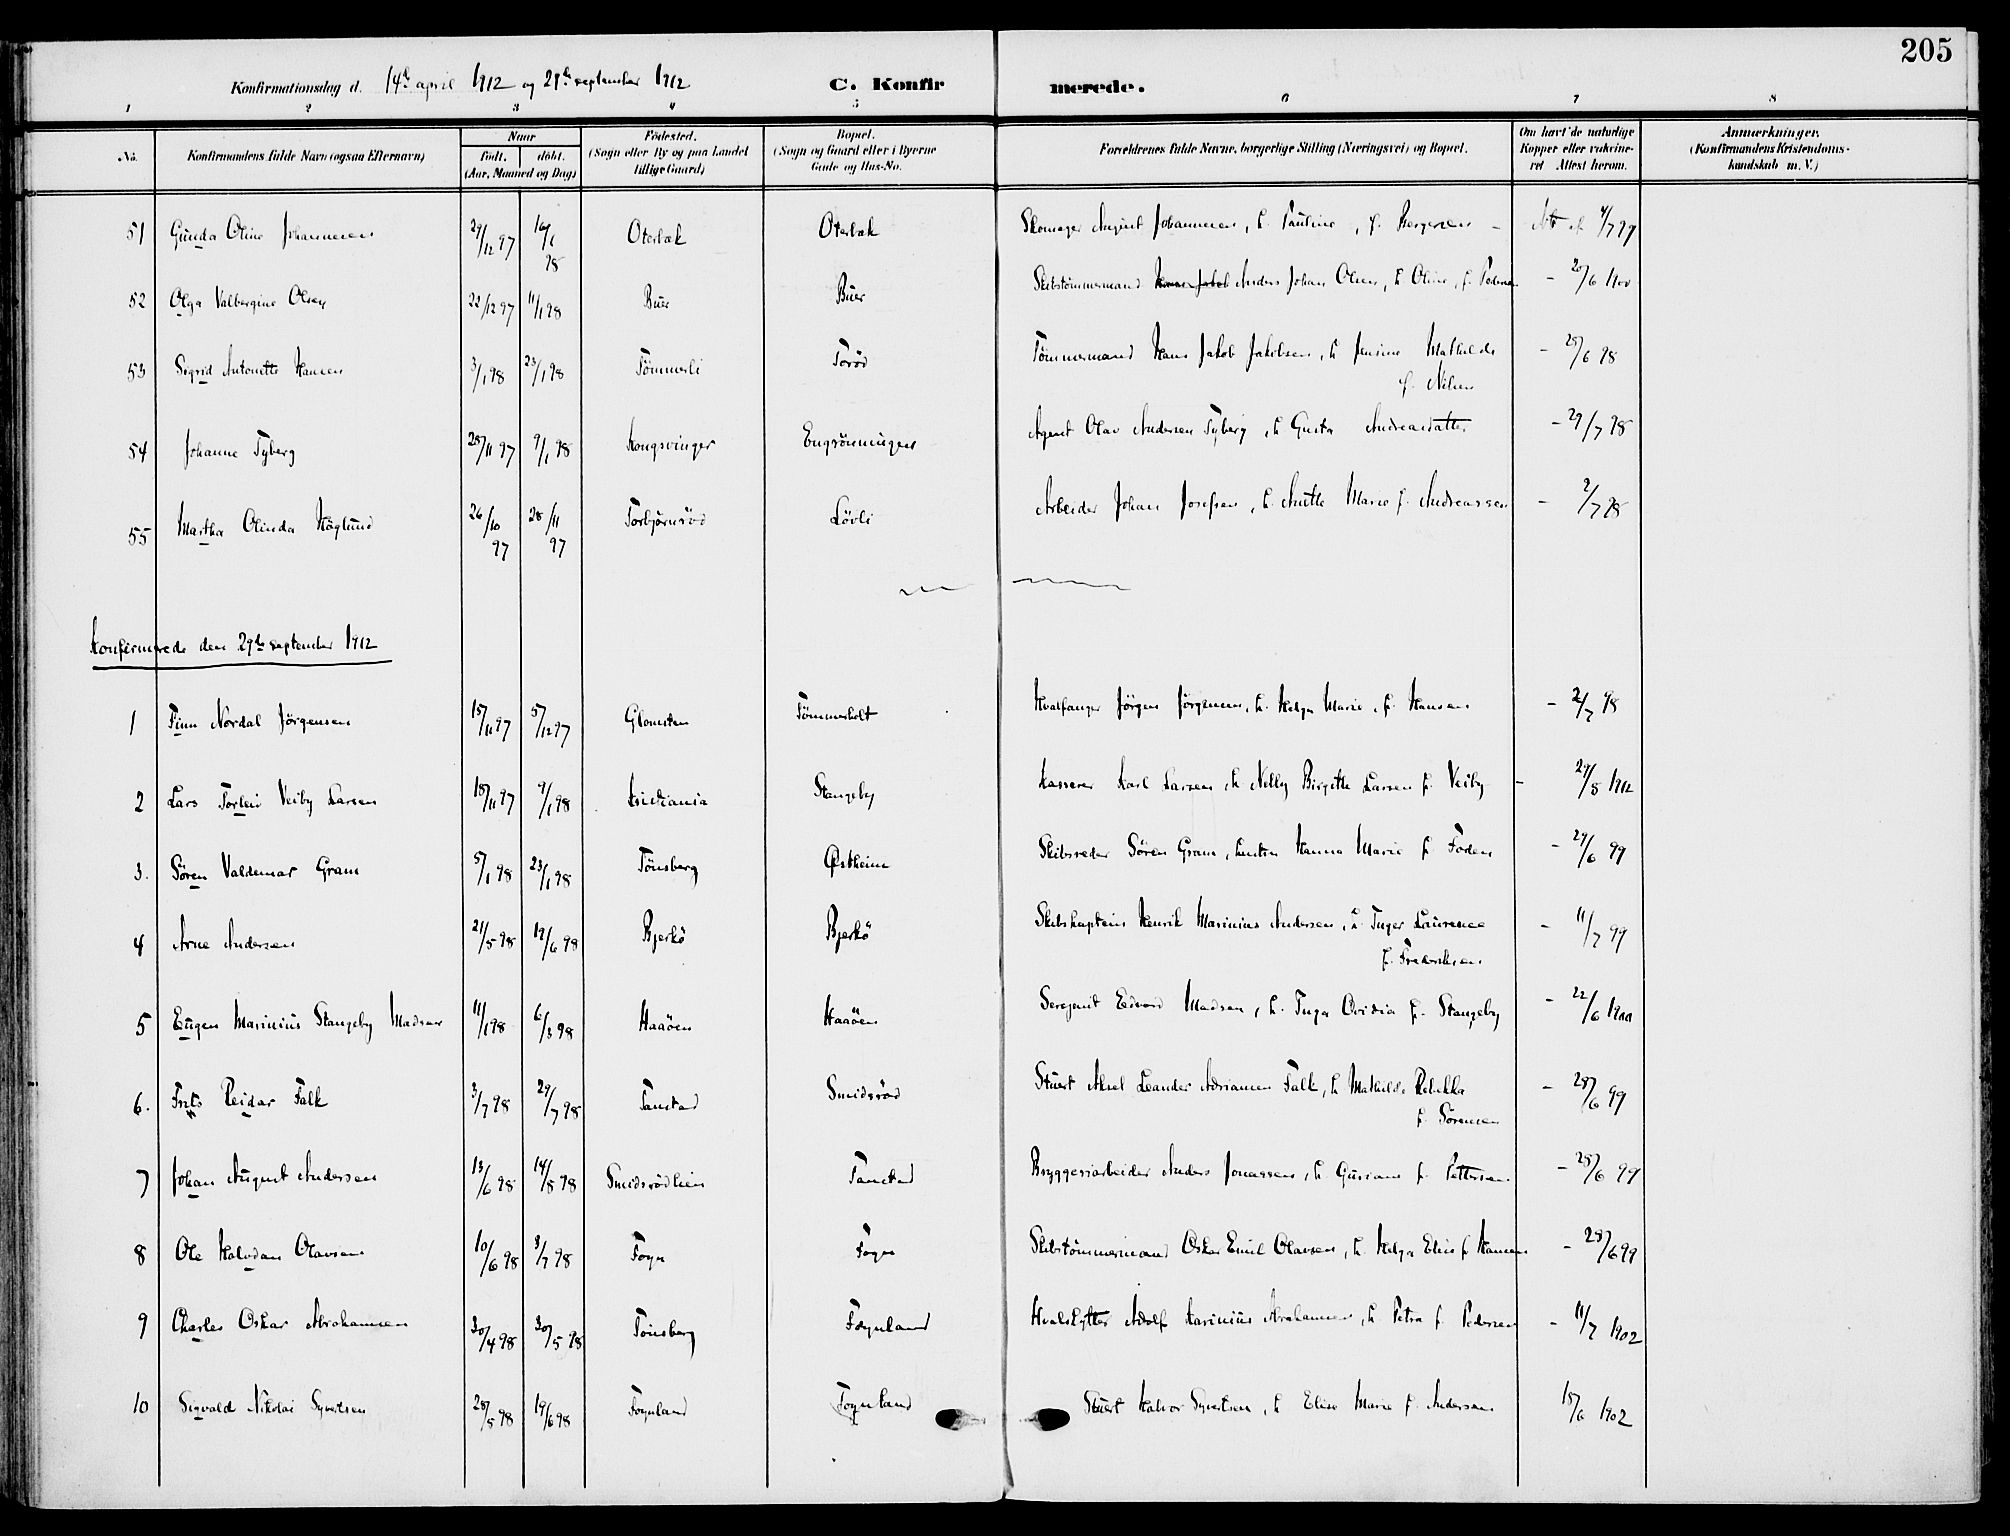 205
Konfirmationsdag d. 14de april 1912 og 29de september 1912 C. Konfirmerede.
1 2 3 4 5 6 7 8
No. Konfirmandens fulde Navn (ogsaa Efternavn) Naar født. døbt. (Aar, Maaned og Dag) Fødested. (Sogn eller By og paa Landet tillige Gaard) Bopæl. (Sogn og Gaard eller i Byerne Gade og Hus-No. Forældrenes fulde Navne, borgerlige Stilling (Næringsvei) og Bopæl. Om havt de naturlige Kopper eller vakcineret Attest herom. Anmærkninger. (Konfirmandens Kristendomskundskab m. V.)
51 Gunda Oline Johannesen 29/12 97 16/1 98 Oterbæk Oterbæk Skomager August Johannesen, h. Pauline, f. Bergersen - Att. af 4/7 99
52 Olga Valbergine Olsen 22/12 97 11/1 98 Buer Buer Skibstömmermand Anders Johan Olsen, h. Oline, f. Pedersen - 20/6 1900
53 Sigrid Antonette Hansen 3/1 98 23/1 98 Tömmerli Torød Tömmermand Hans Jakob Jakobsen, h. Jensine Mathilde - 25/6 98
f. Nilsen
54 Johanne Tyberg 28/11 97 9/1 98 Kongsvinger Engrönningen Agent Olav Andersen Tyberg, h. Gusta Andreasdatter - 29/7 98
55 Martha Olinda Höglund 26/10 97 28/11 97 Torbjörnröd Lövli Arbeider Johan Josefsen, h. Anette Marie f. Andreassen - 2/7 98
Konfirmerede den 29de september 1912
1 Finn Nordal Jörgensen 15/11 97 5/12 97 Glomsten Tömmerholt Hvalfanger Jörgen Jörgensen, h. Helga Marie, f. Hansen - 2/7 98
2 Lars Torleiv Veiby Larsen 18/11 97 9/1 98 Kristiania Stangeby Kasserer Karl Larsen h. Nelly Birgitte Larsen f. Veiby - 29/5 1912
3. Sören Valdemar Gram 5/1 98 23/1 98 Tönsberg Østheim Skibsreder Sören Gram, hustru Hanna Marie f. Foden - 29/6 99
4 Arne Andersen 21/5 98 19/6 98 Bjerkö Bjerkö Skibskaptein Henrik Marinius Andersen, h. Inger Laurence - 11/7 99
f. Fredriksen
5 Eugen Marinius Stangeby Madsen 11/1 98 6/3 98 Haaöen Haaöen Sergeant Edvard Madsen, h. Inga Ovidia f. Stangeby - 22/6 1900
6. Frits Reidar Falk 3/7 98 29/7 98 Tanstad Smidsröd Stuert Aksel Leander Adriansen Falk, h. Mathilde Rebekka - 28/6 99
f. Sörensen
7 Johan August Andersen 13/6 98 14/8 98 Smidsrödlien Tanstad Bryggeriarbeider Anders Jonassen, h. Gusiane f. Pettersen - 28/6 99
8 Ole Halvdan Olavsen 10/6 98 3/7 98 Foyn Foyn Skibstömmermand Oskar Emil Olavsen, h. Helga Elise f. Hansen - 28/6 99
9 Charles Oskar Abrahamsen 30/4 98 30/5 98 Tönsberg Foynland Hvalskytter Adolf Karinius Abrahamsen, h. Petra f. Pedersen - 11/7 1902
10 Sigvald Nikolai Syvertsen 28/5 98 19/6 98 Foynland Foynland Stuert Halvor Syvertsen, h. Elise Marie f. Andersen 18/6 1902